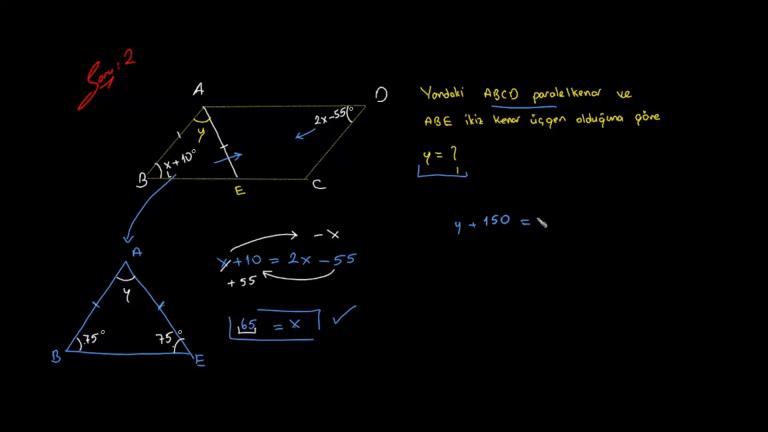 Soru: 2
A
D
Yandaki ABCD paralelkenar ve
ABE ikiz kenar üçgen olduğuna göre
y = ?
2x-55°
y
x+10°
B
E
C
y + 150 =
- x
x+10 = 2x - 55
+ 55
65 = x
A
y
75°
75°
B
E